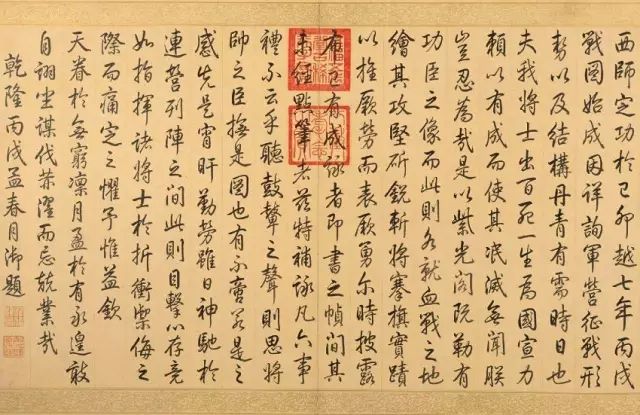 西師定功於己卯越七年丙戌
戰圖始成因詳詢軍營征戰形
勢以及結構丹青有需時日也
夫我將士出百死一生為國宣力
賴以有成而使其泯滅無聞朕
豈忍為哉是以紫光閣既勒有
功臣之像而此則各就血戰之地
繪其攻堅斫銳斬將搴旗實蹟
以推厥勞而表厥勇尔時披露
布已有成詠者即書之幀間其
未經點筆者茲特補詠凡六事
禮不云乎聽鼓鼙之聲則思將
帥之臣撫是圖也有不啻若是之
感先是宵旰勤勞雖日神馳於
連營列陣之間此則目擊以存竟
如指揮諸將士於折衝禦侮之
際而痛定之懼予惟益欽
天眷於無窮凜月盈於有永遑敢
自詡坐謀伐荣濯而忘兢業哉
乾隆丙戌孟春月御題